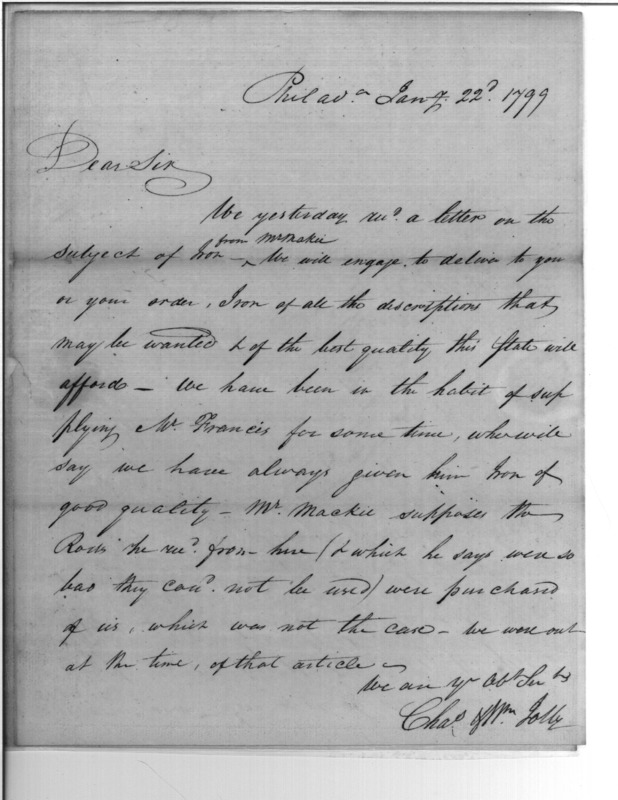 Philada Jany 22d 1799
Dear Sir
We yesterday recd. a letter on the
from Mr Mackie
subject of Iron – ^ We will engage to deliver to you
or your order, Iron of all the descriptions that
may be wanted & of the best quality this State will
afford – We have been in the habit of sup
plying Mr. Francis for some time, who will
say we have always given him Iron of
good quality – Mr. Mackie supposes the
Rods he recd. from here (& which he says were so
bad they coud. not be used) were purchased
of us, which was not the case – we were out
at the time, of that article –
We are yr Obt Servts
Chas & Wm. Jolly